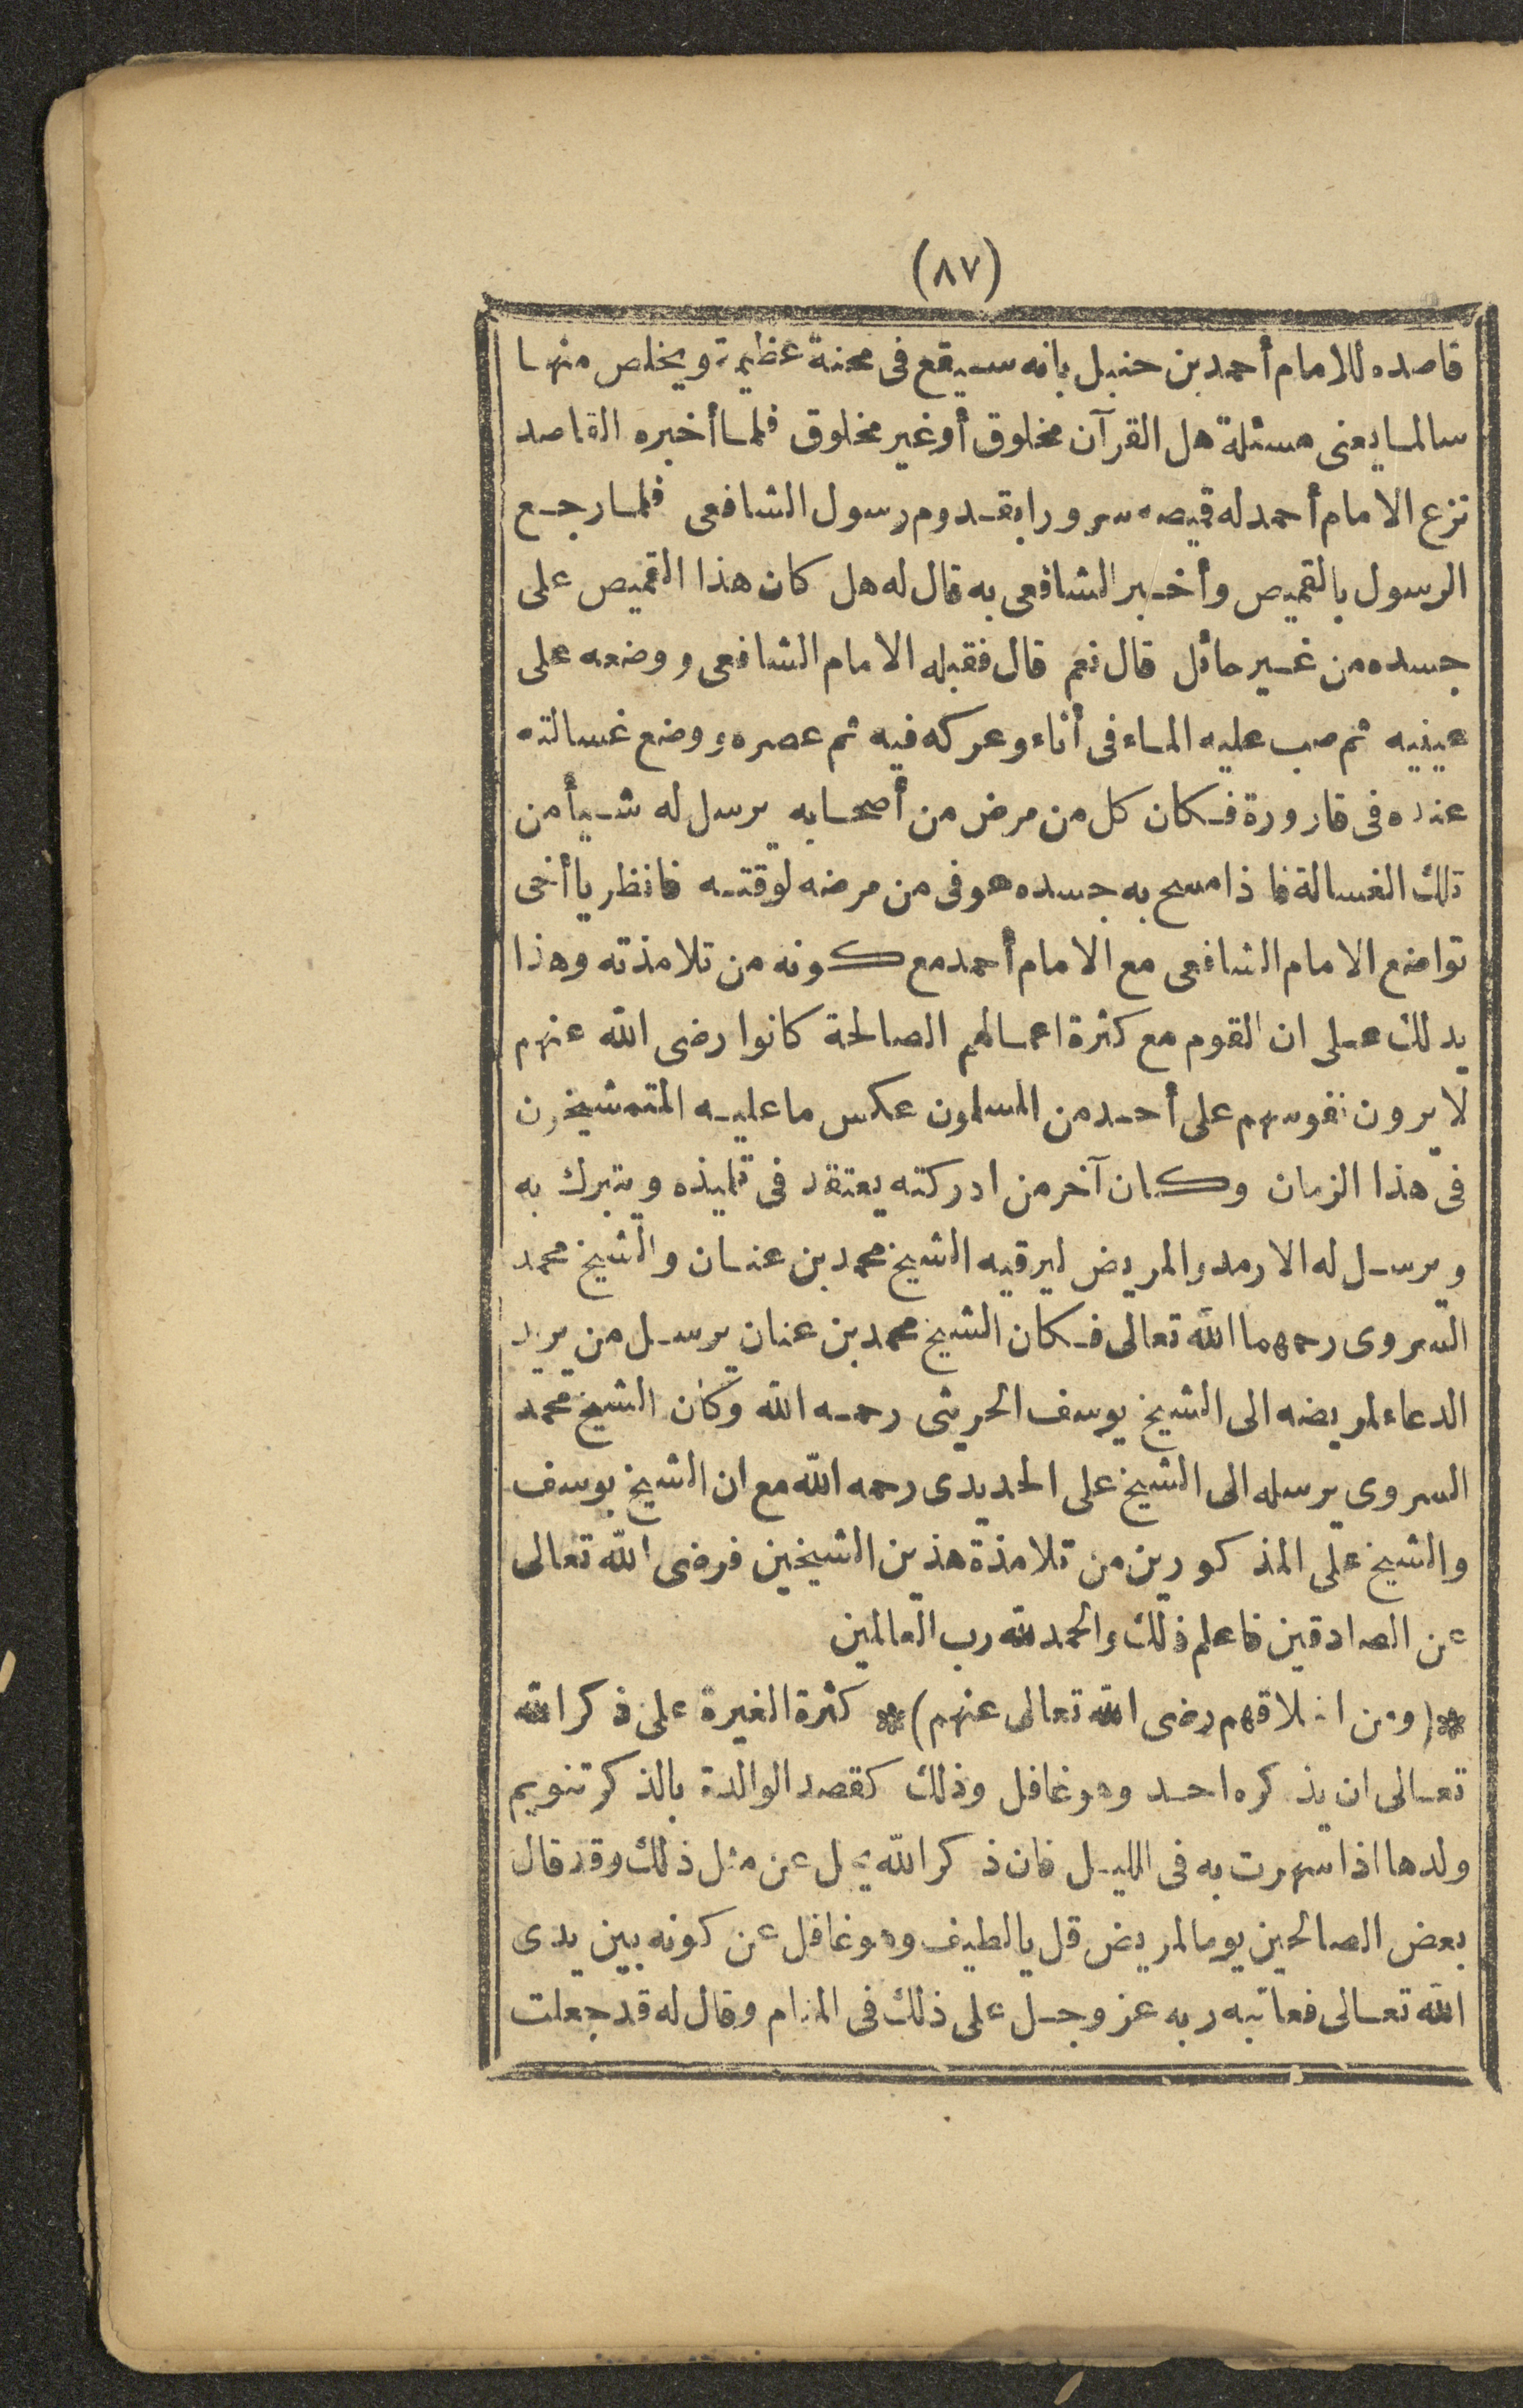 (٨٧)
قاصده للامام أحمد بن حنبل بانه سيقع فى محنة عظيمة ويخلص منها
سالما يعنى مسئلة هل القرآن مخلوق أو غير مخلوق فلما أخبره القاصد
نزع الامام أحمد له قيصه سرورا بقدوم رسول الشافعى فلما رجع
الرسول بالقميص وأخبر الشافعى به قال له هل كان هذا القميص على
جسده من غير حائل قال نعم قال فقبله الامام الشافعى ووضعه على
عينيه ثم صب عليه الماء فى أناء وعركه فيه ثم عصره ووضع غسالته
عنده فى قارورة فكان كل من مرض من أصحابه يرسل له شيأ من
تلك الغسالة فاذا مسح به جسده عوفى من مرضه لوقته فانظر يا أخى
تواضع الامام الشافعى مع الامام أحمد مع كونه من تلامذته وهذا
يدلك على ان القوم مع كثرة اعمالهم الصالحة كانوا رضى الله عنهم
لا يرون نفوسهم على أحد من المسلمون عكس ما عليه المتمشيخون
فى هذا الزمان وكان آخر من ادركته يعتقد فى تلميذه ويتبرك به
ويرسل له الارمد والمريض ليرقيه الشيخ محمد بن عنان والشيخ محمد
السروى رحمهما الله تعالى فكان الشيخ محمد بن عنان يرسل من يريد
الدعاء لمريضه الى الشيخ يوسف الحريثى رحمه الله وكان الشيخ محمد
السروى يرسله الى الشيخ على الحديدى رحمه الله مع ان الشيخ يوسف
والشيخ على المذكورين من تلامذة هذين الشيخين فرضى الله تعالى
عن الصادقين فاعلم ذلك والحمد لله رب العالمين
❊(ومن اخلاقهم رضى الله تعالى عنهم)❊ كثرة الغيرة على ذكر الله
تعالى ان يذكره احد وهو غافل وذلك كقصد الوالدة بالذكر تنويم
ولدها اذا سهرت به فى الليل فان ذكر الله يجل عن مثل ذلك وقد قال
بعض الصالحين يوما لمريض قل يا لطيف وهو غافل عن كونه بين يدى
الله تعالى فعاتبه ربه عز وجل على ذلك فى المنام وقال له قد جعلت